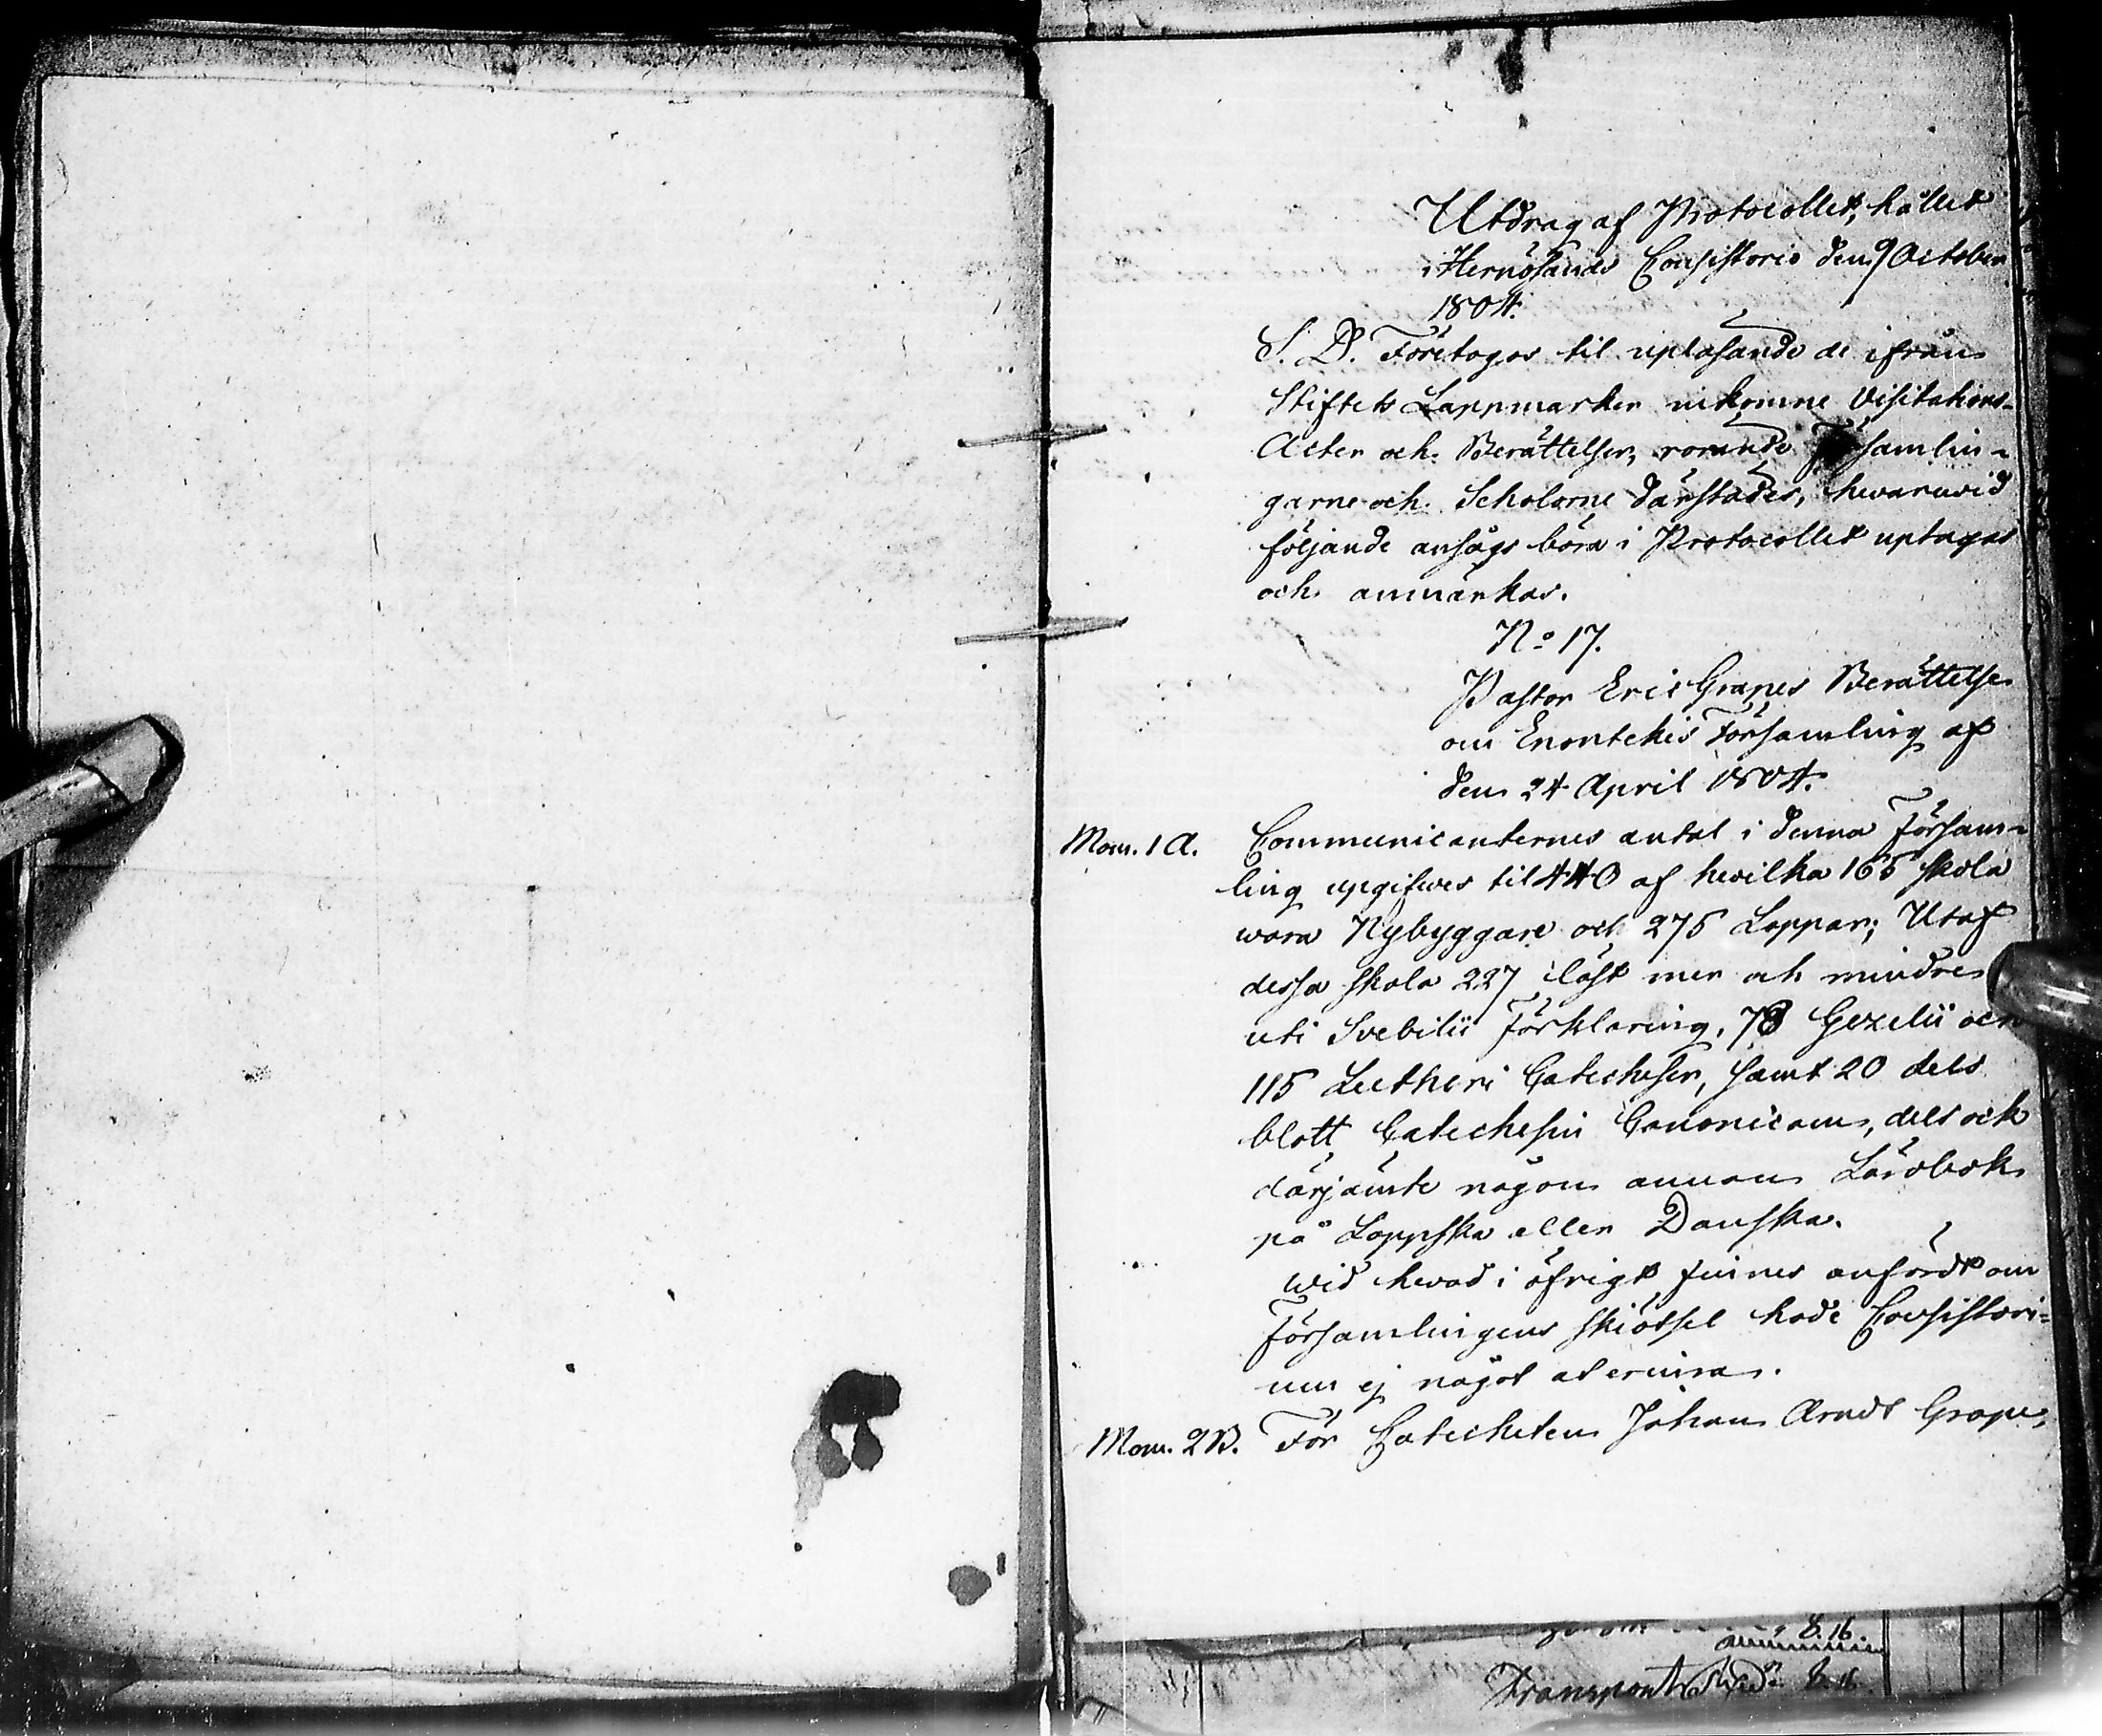 Utdrag af Protocollet, hållet
i Hernösands Consistorio den 9 October
1804.
S. D. Företogos til uplåsande de ifrån
Stiftets Lappmarker inkomne Visitations-
Acter och Berättelser, rörande Församlin-
garne och Scholorne därstädes, hwarwid
följande ansågs böra i Protocollet uptagas
och anmärkas.
No 17.
Pastor Eric Grapes Berättelse
om Enontekis Församling af
den 24 April 1804.
Mom. 1 A. Communicanternes antal i denna Försam-
ling upgifwes til 440 af hwilka 165 skola
wara Nybyggare och 275 Lappar; Utaf
dessa skola 227 läst mer och mindre
uti Svebilii Förklaring, 78 Gezelii och
115 Lutheri Catecheser, samt 20 dels
blott Catechesin Canonicam, dels ock
därjämte någon annan Lärobok
på Lappska eller Danska.
Wid hwad i öfrigt finnes anfördt om
Församlingens skiötsel hade Consistori-
um ej något at erinra.
Mom. 2 B. För Catecheten Johan Arndt Grape,
8.16.
Transport 8.16.